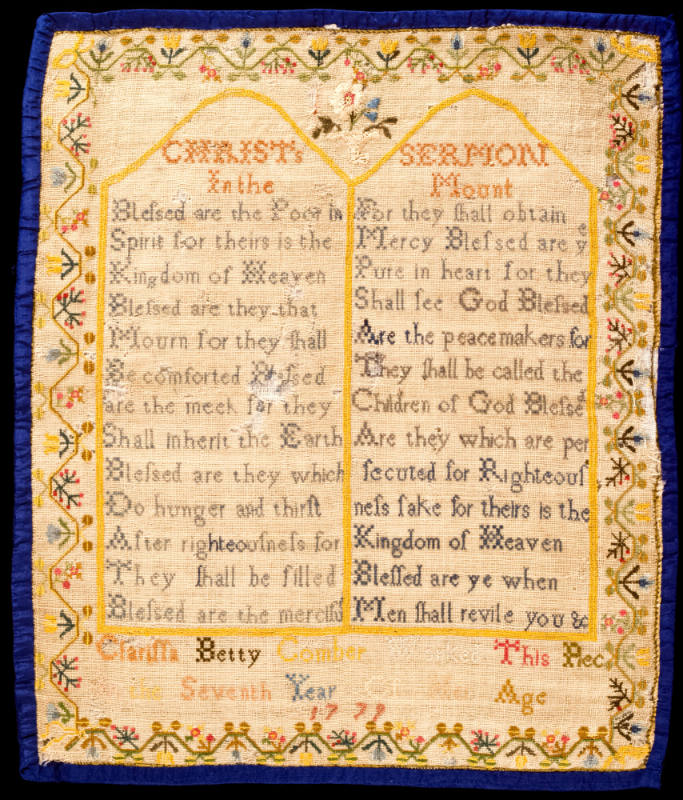 CHRISTs
In the
Bleſsed are the Poor in
Spirit for theirs is the
Kingdom of Heaven
Bleſsed are they that
Mourn for they ſhall
Be comforted Bleſsed
are the meek for they
Shall inherit the Earth
Bleſsed are they which
Do hunger and thirſt
After righteouſneſs for
They ſhall be filled
Bleſsed are the merciful
SERMON
Mount
For they ſhall obtain
Mercy Bleſsed are yᵉ
Pure in heart for they
Shall ſee God Bleſsed
Are the peacemakers for
They ſhall be called the
Children of God Bleſsed
Are they which are per
ſecuted for Righteouſ
neſs ſake for theirs is the
Kingdom of Heaven
Bleſſed are ye when
Men ſhall revile you &c
Clariſſa Betty Comber This
the Seventh Year Age
17